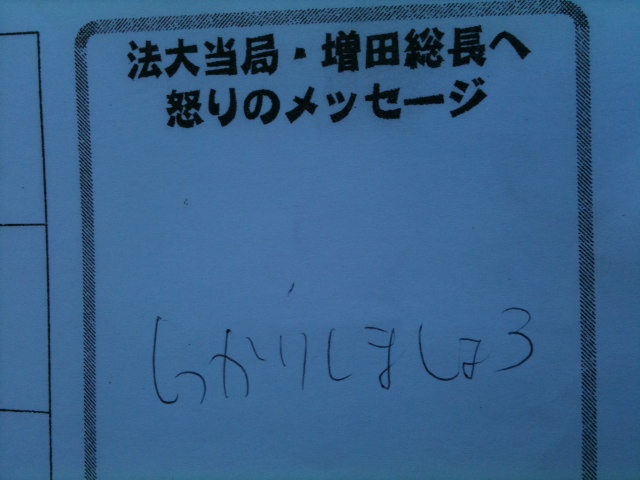 法大当局・増田総長へ
怒りのメッセージ
しっかりしましょう